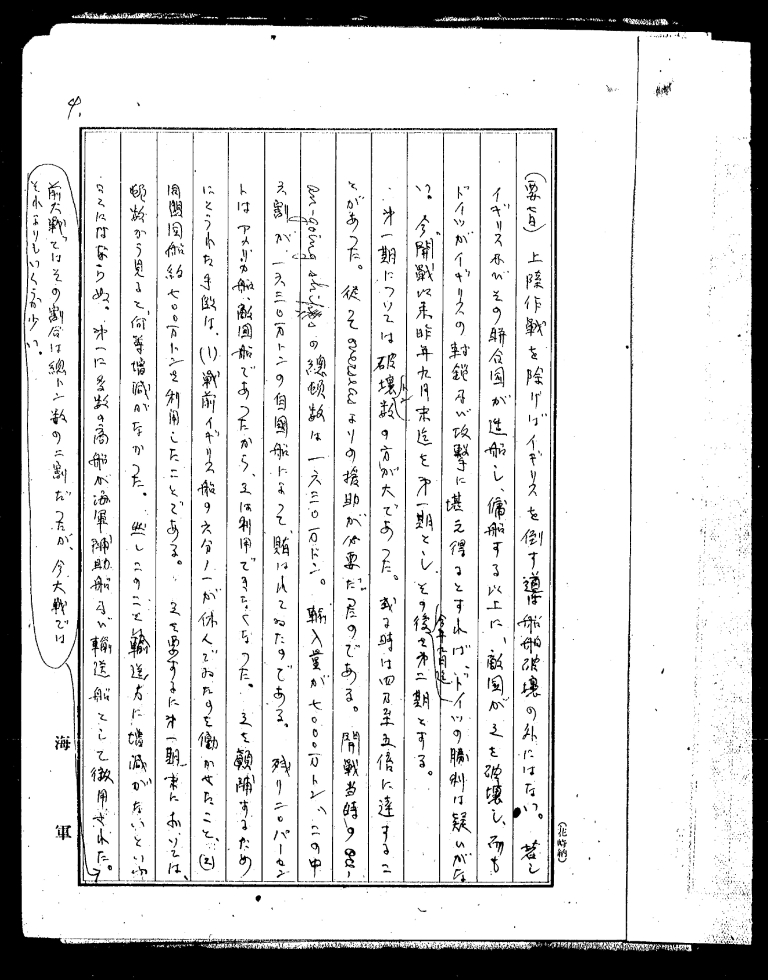 4.
(要旨) 上陸作戦を除けばイギリスを倒す道は船舶破壊の外にはない。若し
イギリス及びその聯合国が造船し、傭船する以上に、敵国が之を破壊し、而も
ドイツがイギリスの封鎖及び攻撃に堪え得るとすれば、ドイツの勝利は疑いがな
い。今開戦以来昨年九月末迄を第一期とし、その後今年九月迄を第二期とする。
第一期については破壊数の方が大であった。或る時は四乃至五倍に達するこ
とがあった。従って overseas よりの援助が必要だったのである。開戦当時の
an-going ships の総噸数は一六三〇万トン。輸入量が七〇〇〇万トン、この中
六割が、一六三〇万トンの自国船によって賄はれてゐたのである。残り二〇パーセン
トはアメリカ船、敵国船であったから、之は利用できなくなった。之を補するため
にとられた手段は、(1) 戦前イギリス船の六分ノ一が休んでゐたのを働かせたこと、(2)
同盟国船約七〇〇万トンを利用したことである。之を要するに第一期末に於いては、
噸数から見ると、何等増減がなかった。然しこのこと輸送力に増減がないといふ
ことにはならぬ。第一に多数の商船が海軍補助船及び輸送船として徴用された。
前大戦ではその割合は総トン数の二割だったが、今大戦では
それよりもいくらか少い。
海軍